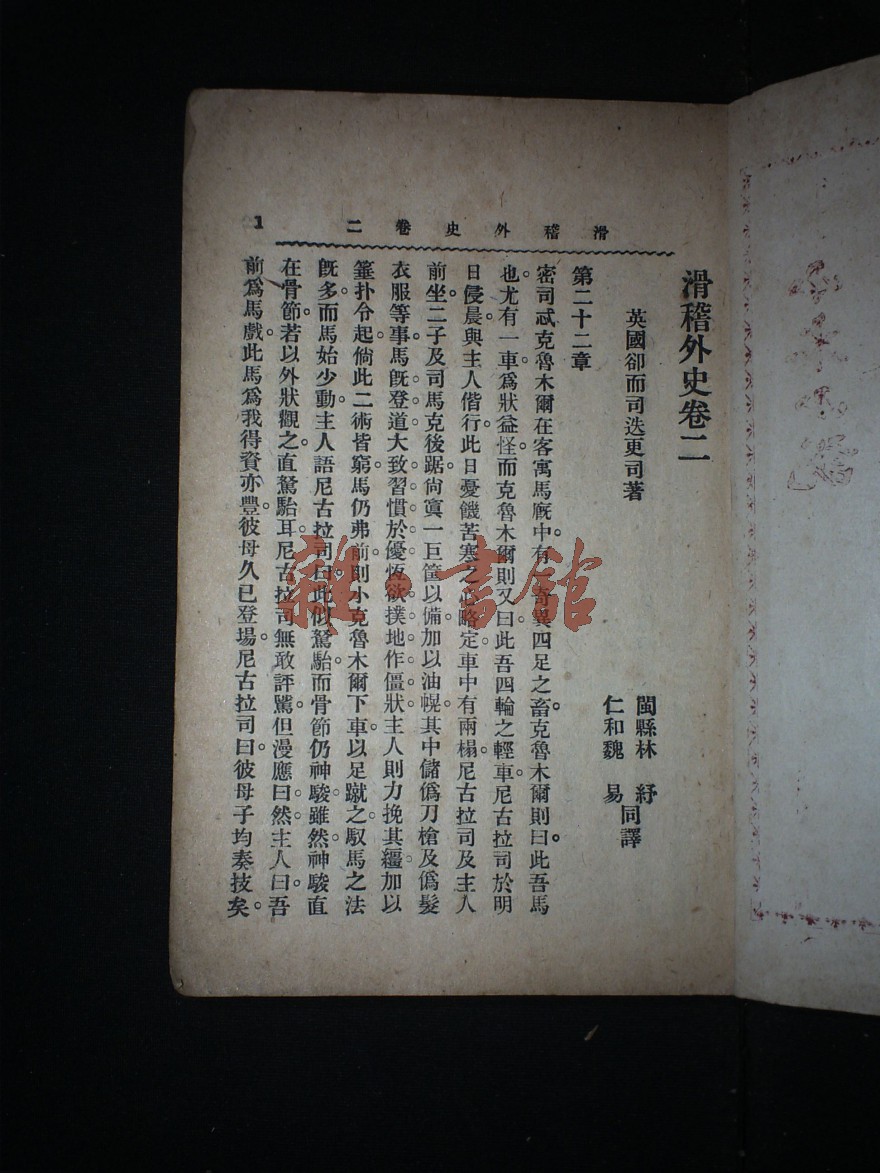 滑稽外史卷二
1
滑稽外史卷二
英國卻而司迭更司著
閩縣林紓
仁和魏易
同譯
第二十二章
密司忒克魯木爾在客寓馬厩中。有一奇異四足之畜。克魯木爾則曰。此吾馬
也。尤有一車爲狀益怪。而克魯木爾則又曰。此吾四輪之輕車。尼古拉司於明
日侵晨。與主人偕行。此日憂饑苦寒之心略定。車中有兩榻。尼古拉司及主人
前坐。二子及司馬克後踞。尙寘一巨筐以備。加以油幌。其中儲僞刀槍及僞髮
衣服等事。馬旣登道。大致習慣於優。恆欲撲地作僵狀。主人則力挽其繮。加以
箠扑令起。倘此二術皆窮。馬仍弗前。則小克魯木爾下車。以足蹴之。馭馬之法
旣多。而馬始少動。主人語尼古拉司曰。此似駑駘。而骨節仍神駿。雖然神駿直
在骨節。若以外狀觀之。直駑駘耳。尼古拉司無敢評騭。但漫應曰。然。主人曰。吾
前爲馬戲。此馬爲我得資亦豐。彼母久已登場。尼古拉司曰。彼母子均奏技矣。
雜·書館